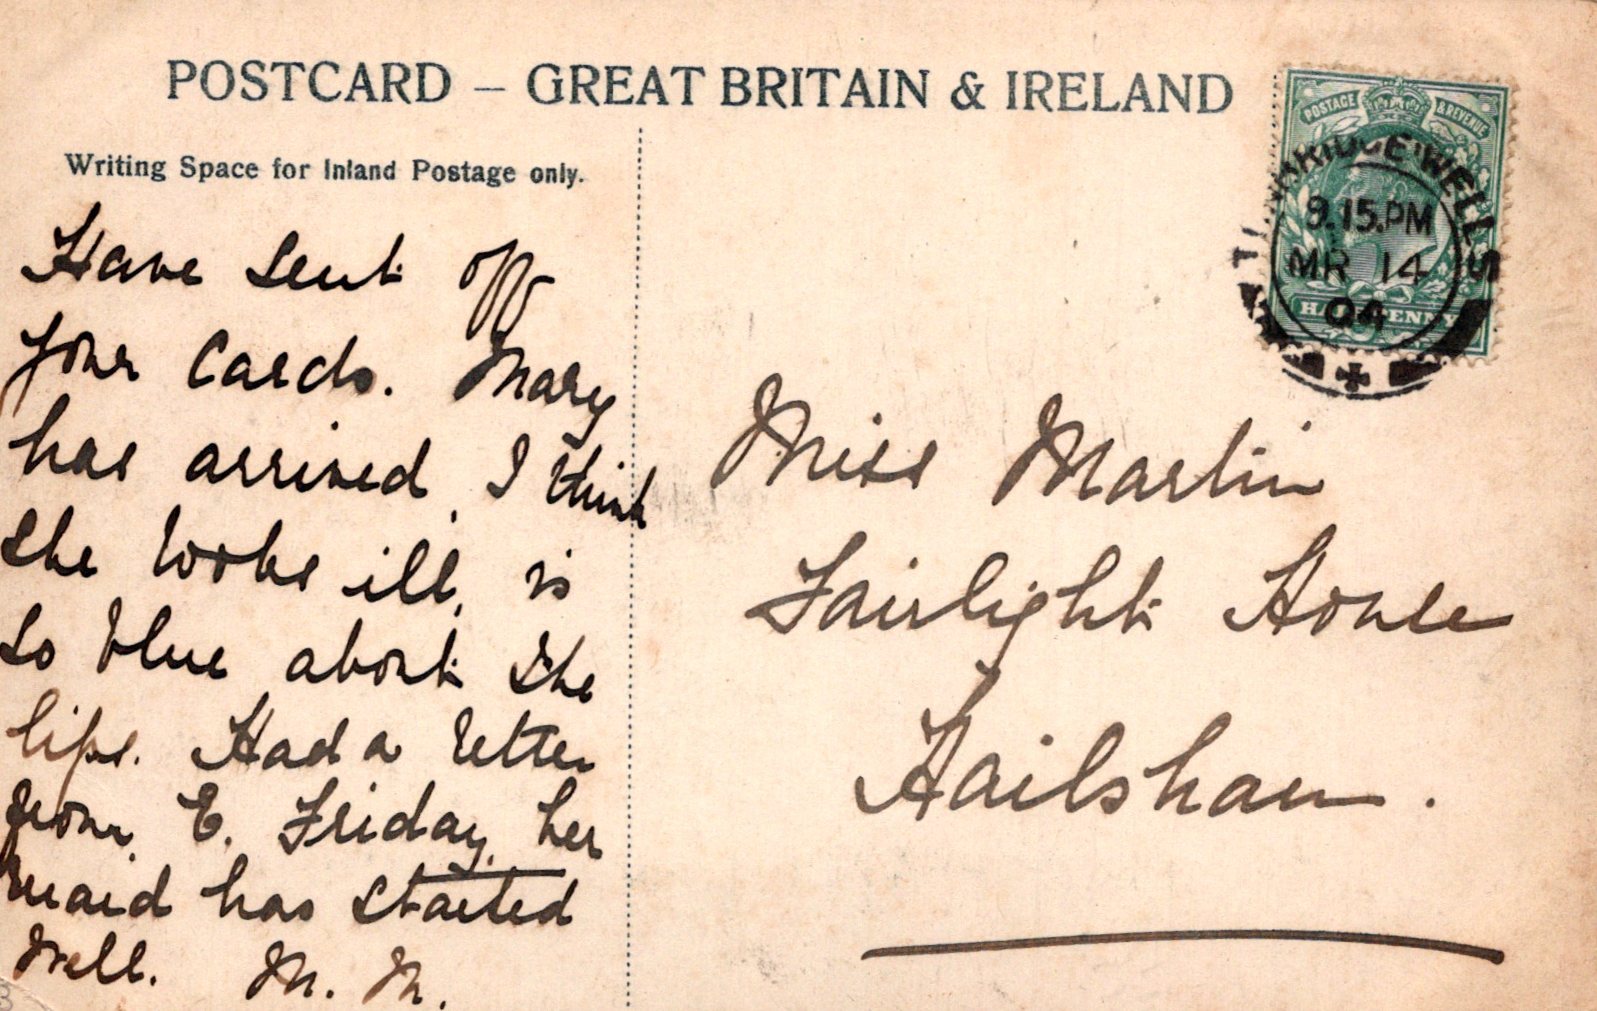 POSTCARD – GREAT BRITAIN & IRELAND
Writing Space for Inland Postage only.
Have sent off
your cards. Mary
has arrived, I think
she looks ill, is
so blue about the
lips. Had a letter
from E. Friday, her
maid has started
well. M. M.
POSTAGE & REVENUE
TUNBRIDGE WELLS
9.15.PM
MR 14
04
HALFPENNY
Miss Martin
Fairlight House
Hailsham.